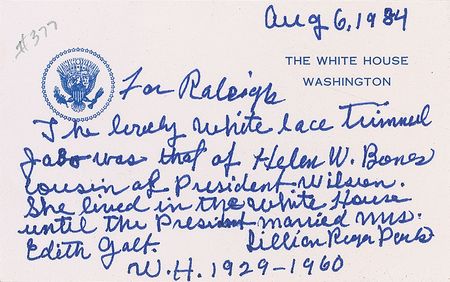 Aug 6, 1984
#377
THE WHITE HOUSE
WASHINGTON
For Raleigh
The lovely white lace trimmed
Jabo was that of Helen W. Bones
cousin of President Wilson.
She lived in the White House
until the President married Mrs.
Edith Galt. Lillian Rogers Parks
W.H. 1929-1960